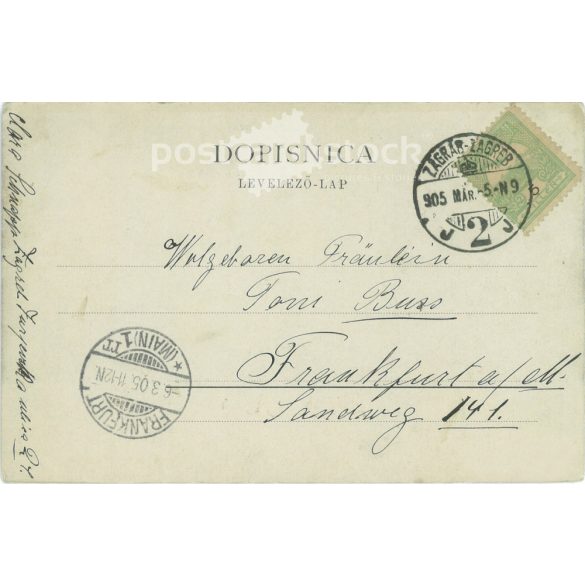 DOPISNICA
LEVELEZŐ-LAP
ZÁGRÁB-ZAGREB
905 MÁR.-5-N9
J 2 J
Wolgeboren Fräulein
Toni Buss
Frankfurt a/M.
Sandweg 141.
FRANKFURT
-6.3.05.11-12N.
*(MAIN)1 TT
Clara Zagreb